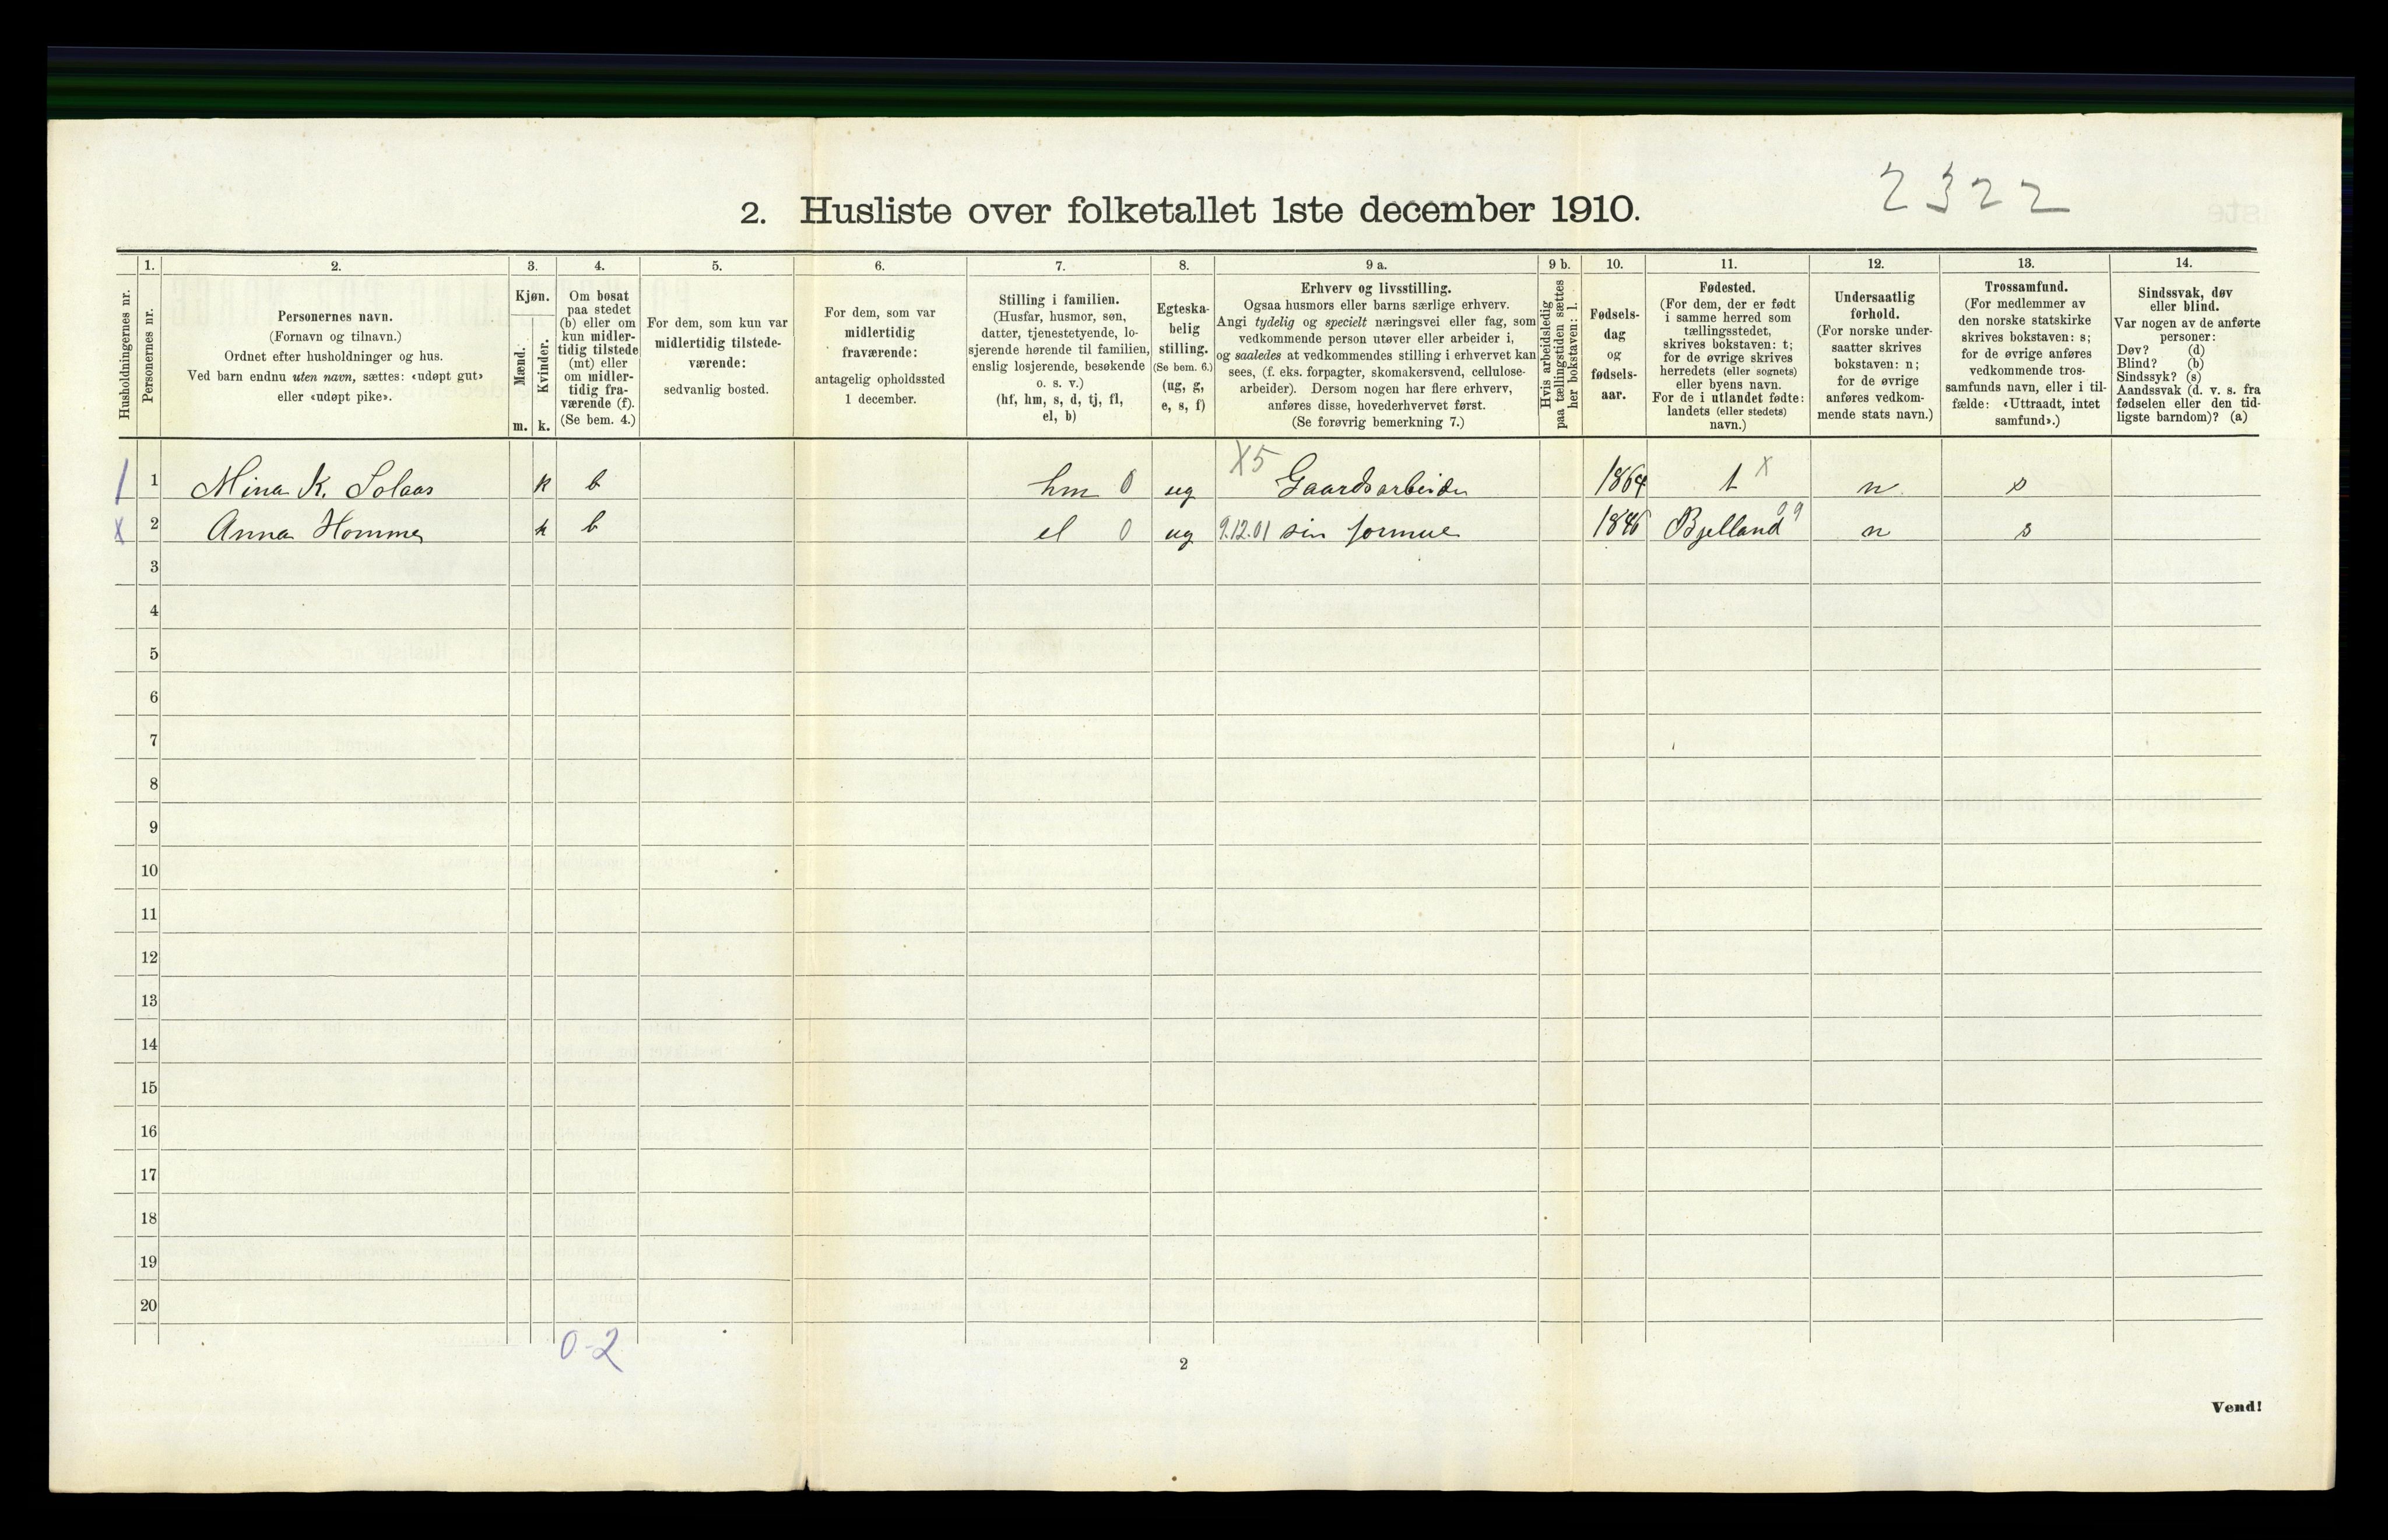 2322
2. Husliste over folketallet 1ste december 1910.
Husholdningernes nr.
1.
Personernes nr.
2.
Personernes navn.
(Fornavn og tilnavn.)
Ordnet efter husholdninger og hus.
Ved barn endnu uten navn, sættes: «udøpt gut»
eller «udøpt pike».
3.
Kjøn.
Mænd.
Kvinder.
m. k.
4.
Om bosat
paa stedet
(b) eller om
kun midler-
tidig tilstede
(mt) eller
om midler-
tidig fra-
værende (f).
(Se bem. 4.)
5.
For dem, som kun var
midlertidig tilstede-
værende:
sedvanlig bosted.
6.
For dem, som var
midlertidig
fraværende:
antagelig opholdssted
1 december.
7.
Stilling i familien.
(Husfar, husmor, søn,
datter, tjenestetyende, lo-
sjerende hørende til familien,
enslig losjerende, besøkende
o. s. v.)
(hf, hm, s, d, tj, fl,
el, b)
8.
Egteska-
belig
stilling.
(Se bem. 6.)
(ug, g,
e, s, f)
9 a.
Erhverv og livsstilling.
Ogsaa husmors eller barns særlige erhverv.
Angi tydelig og specielt næringsvei eller fag, som
vedkommende person utøver eller arbeider i,
og saaledes at vedkommendes stilling i erhvervet kan
sees, (f. eks. forpagter, skomakersvend, cellulose-
arbeider). Dersom nogen har flere erhverv,
anføres disse, hovederhvervet først.
(Se forøvrig bemerkning 7.)
9 b.
Hvis arbeidsledig
paa tællingstiden sættes
her bokstaven: l.
10.
Fødsels-
dag
og
fødsels-
aar.
11.
Fødested.
(For dem, der er født
i samme herred som
tællingsstedet,
skrives bokstaven: t;
for de øvrige skrives
herredets (eller sognets)
eller byens navn.
For de i utlandet fødte:
landets (eller stedets)
navn.)
12.
Undersaatlig
forhold.
(For norske under-
saatter skrives
bokstaven: n;
for de øvrige
anføres vedkom-
mende stats navn.)
13.
Trossamfund.
(For medlemmer av
den norske statskirke
skrives bokstaven: s;
for de øvrige anføres
vedkommende tros-
samfunds navn, eller i til-
fælde: «Uttraadt, intet
samfund».)
14.
Sindssvak, døv
eller blind.
Var nogen av de anførte
personer:
Døv? (d)
Blind? (b)
Sindssyk? (s)
Aandssvak (d. v. s. fra
fødselen eller den tid-
ligste barndom)? (a)
1 Mina K. Solaas k b hm 0 ug X5 Gaardsarbeider 1864 t x n s
x 2 Anna Homme k b el 0 ug 9.12.01 sin formue 1846 Bjelland 09 n s
3
4
5
6
7
8
9
10
11
12
13
14
15
16
17
18
19
20
0-2
2
Vend!